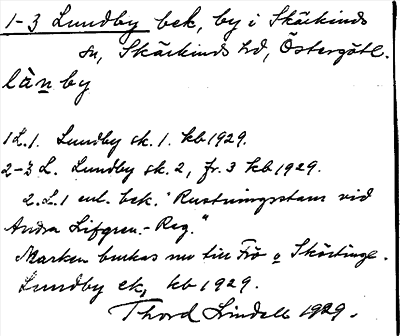 1-3 Lundby bek, by i Skärkinds
sn, Skärkinds hd, Östergötl.
làn by
1 L.1. Lundby sk. 1. kb 1929.
2-3 L. Lundby sk. 2, fr. 3 kb 1929.
2. L. 1 enl. bek. "Rustningsstam vid
Andra Lifgren.-Reg."
Marken brukas nu till Frö o Skörtinge.
Lundby ek, kb 1929.
Thord Lindell 1929.